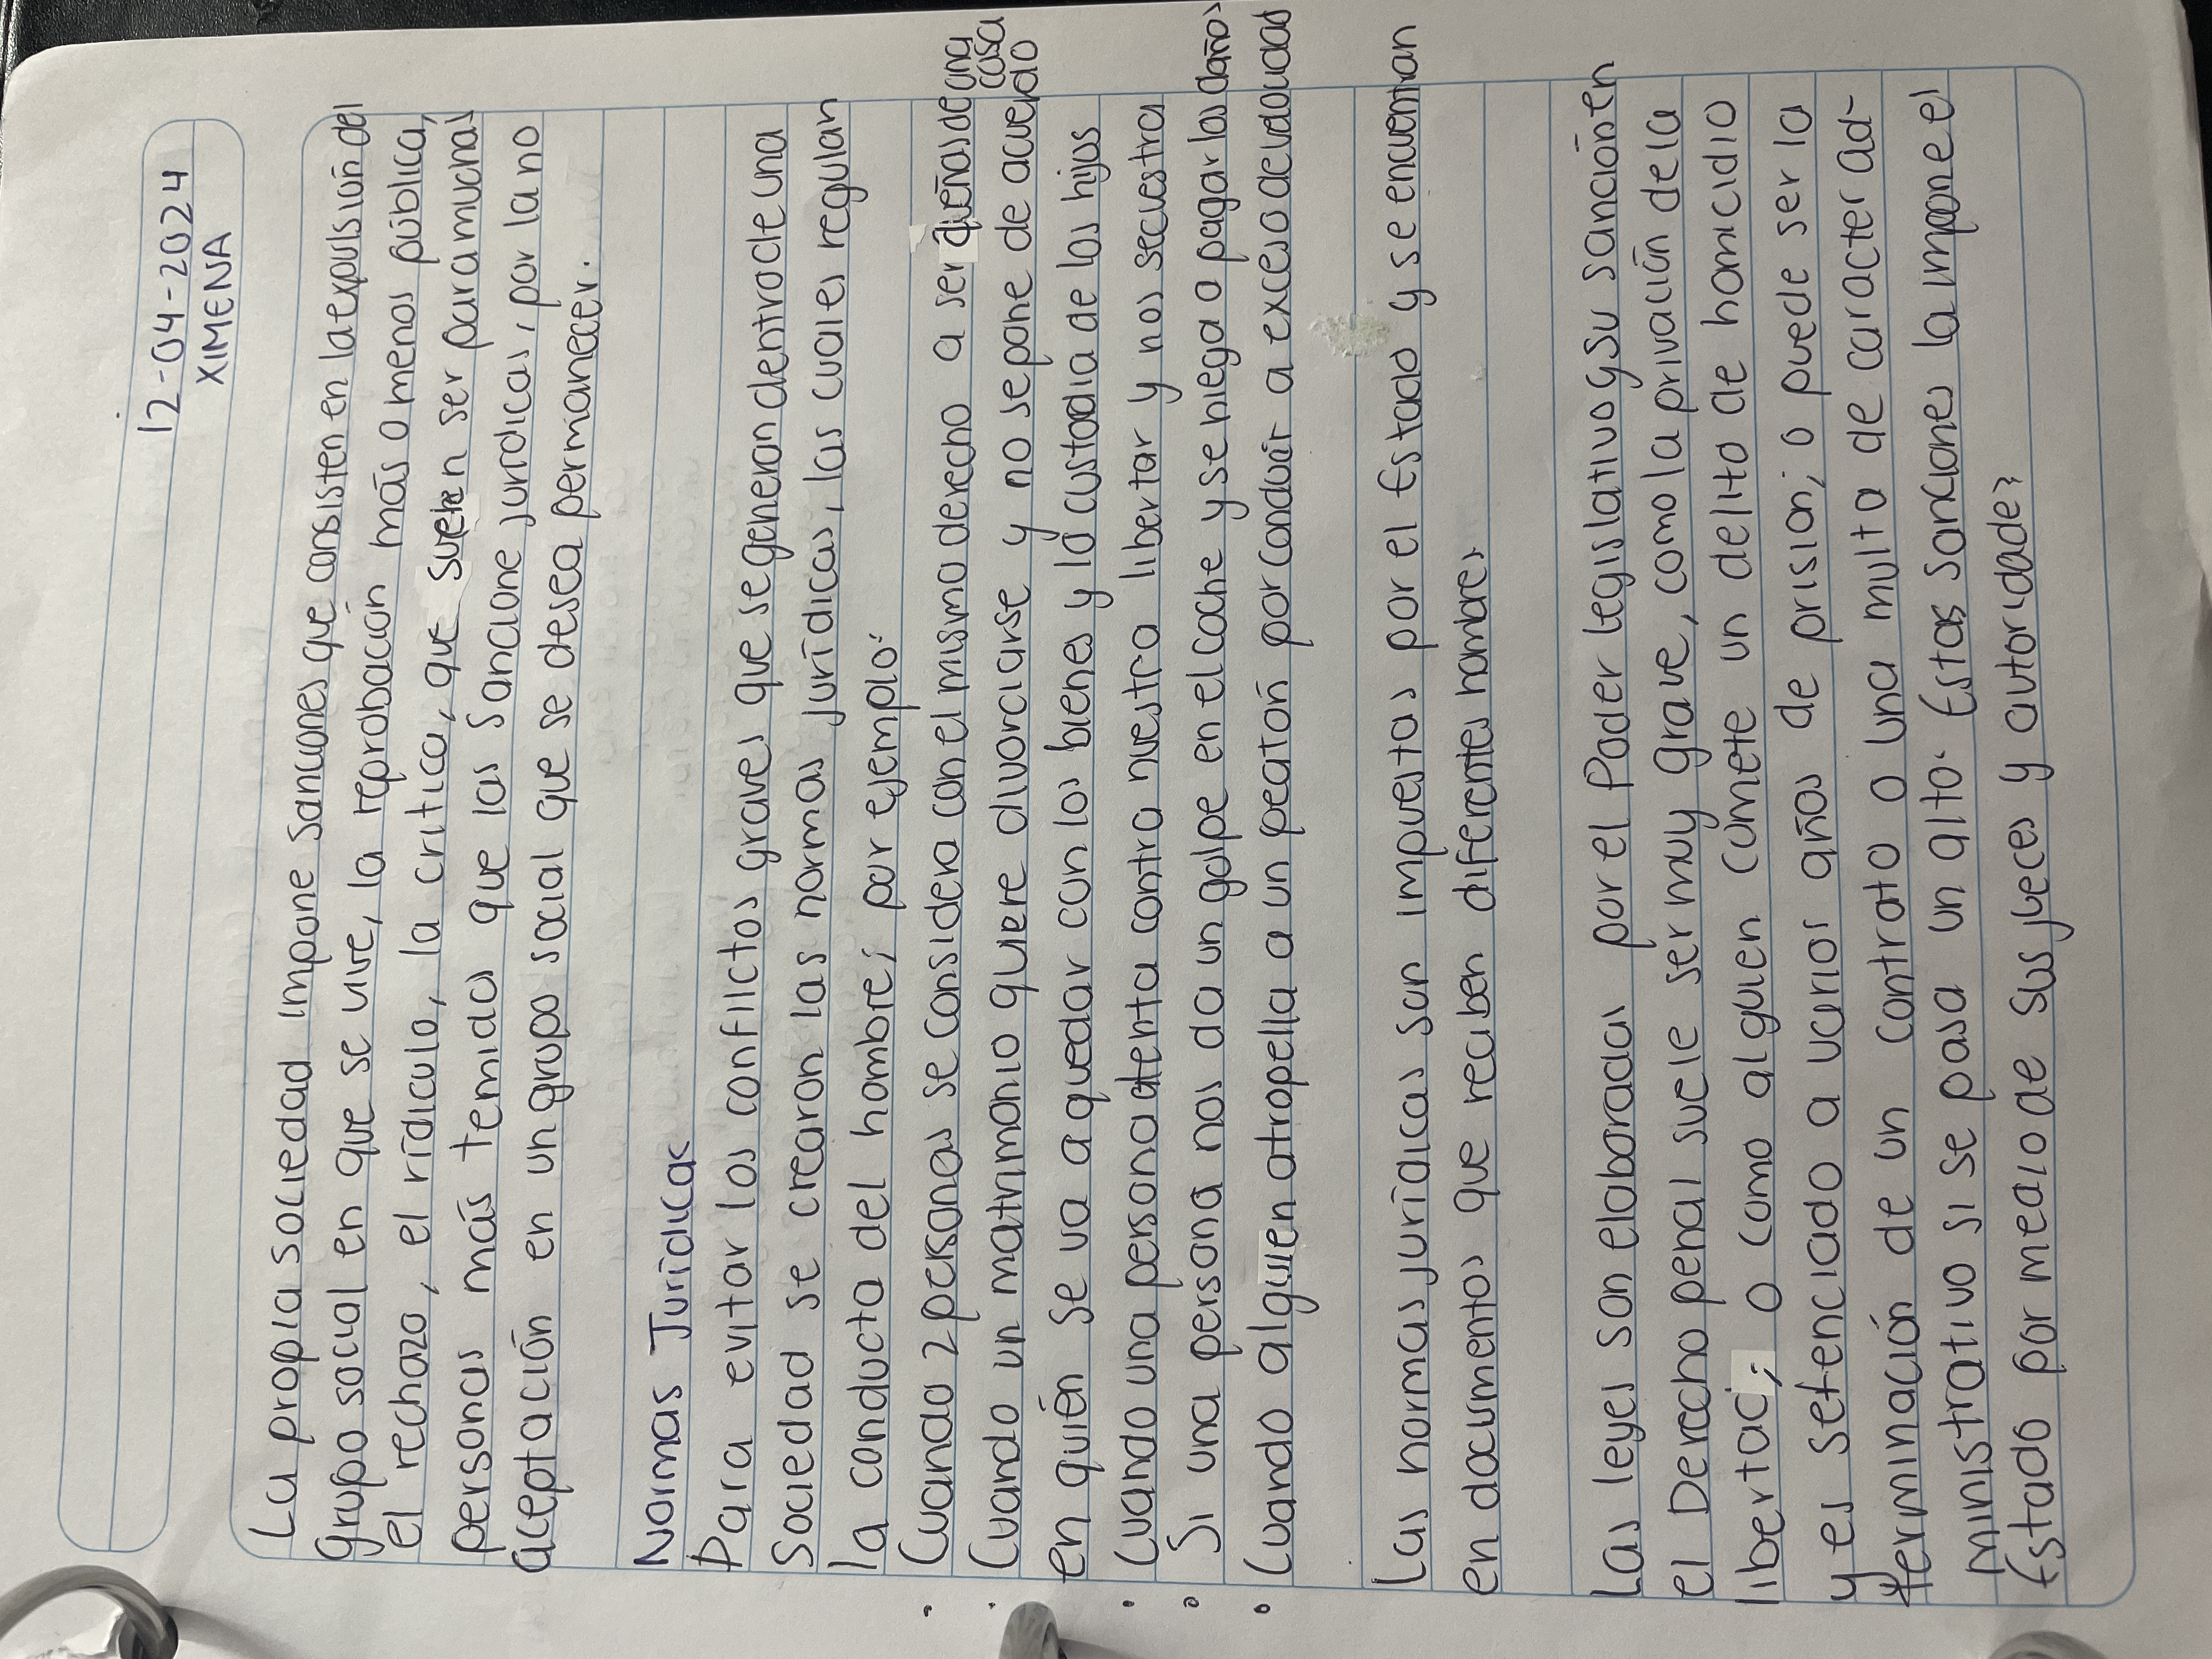 12-04-2024
XIMENA
La propia sociedad impone sanciones que consisten en la expulsión del
grupo social en que se vive, la reprobación más o menos pública,
el rechazo, el rídiculo, la critica, que suelen ser para muchas
personas más temidas que las Sancione jurídicas, por la no
aceptación en un grupo social que se desea permanecer.
Normas Jurídicas
Para evitar los conflictos graves que se generan dentro de una
sociedad se crearon las normas jurídicas, las cuales regulan
la conducta del hombre; por ejemplo:
• Cuando 2 personas se considera con el mismo derecho a ser dueñas de una casa
• Cuando un matrimonio quiere divorciarse y no se pone de acuerdo
en quién se va a quedar con los bienes y la custodia de los hijos
• Cuando una persona atenta contra nuestra libertar y nos secuestra
• Si una persona nos da un golpe en el coche y se niega a pagar los daños
• Cuando alguien atropella a un peatón por conducir a exceso de velocidad
Las normas jurídicas son impuestas por el Estado y se encuentran
en documentos que reciben diferentes nombres
Las leyes son elaboradas por el Poder legislativo y su sanción en
el Derecho penal suele ser muy grave, como la privación de la
libertad; o como alguien cómete un delito de homicidio
y es setenciado a varios años de prision; o puede ser la
terminación de un contrato o una multa de caracter ad-
ministrativo si se pasa un alto. Estas sanciones la impone el
Estado por medio de sus jueces y autoridades